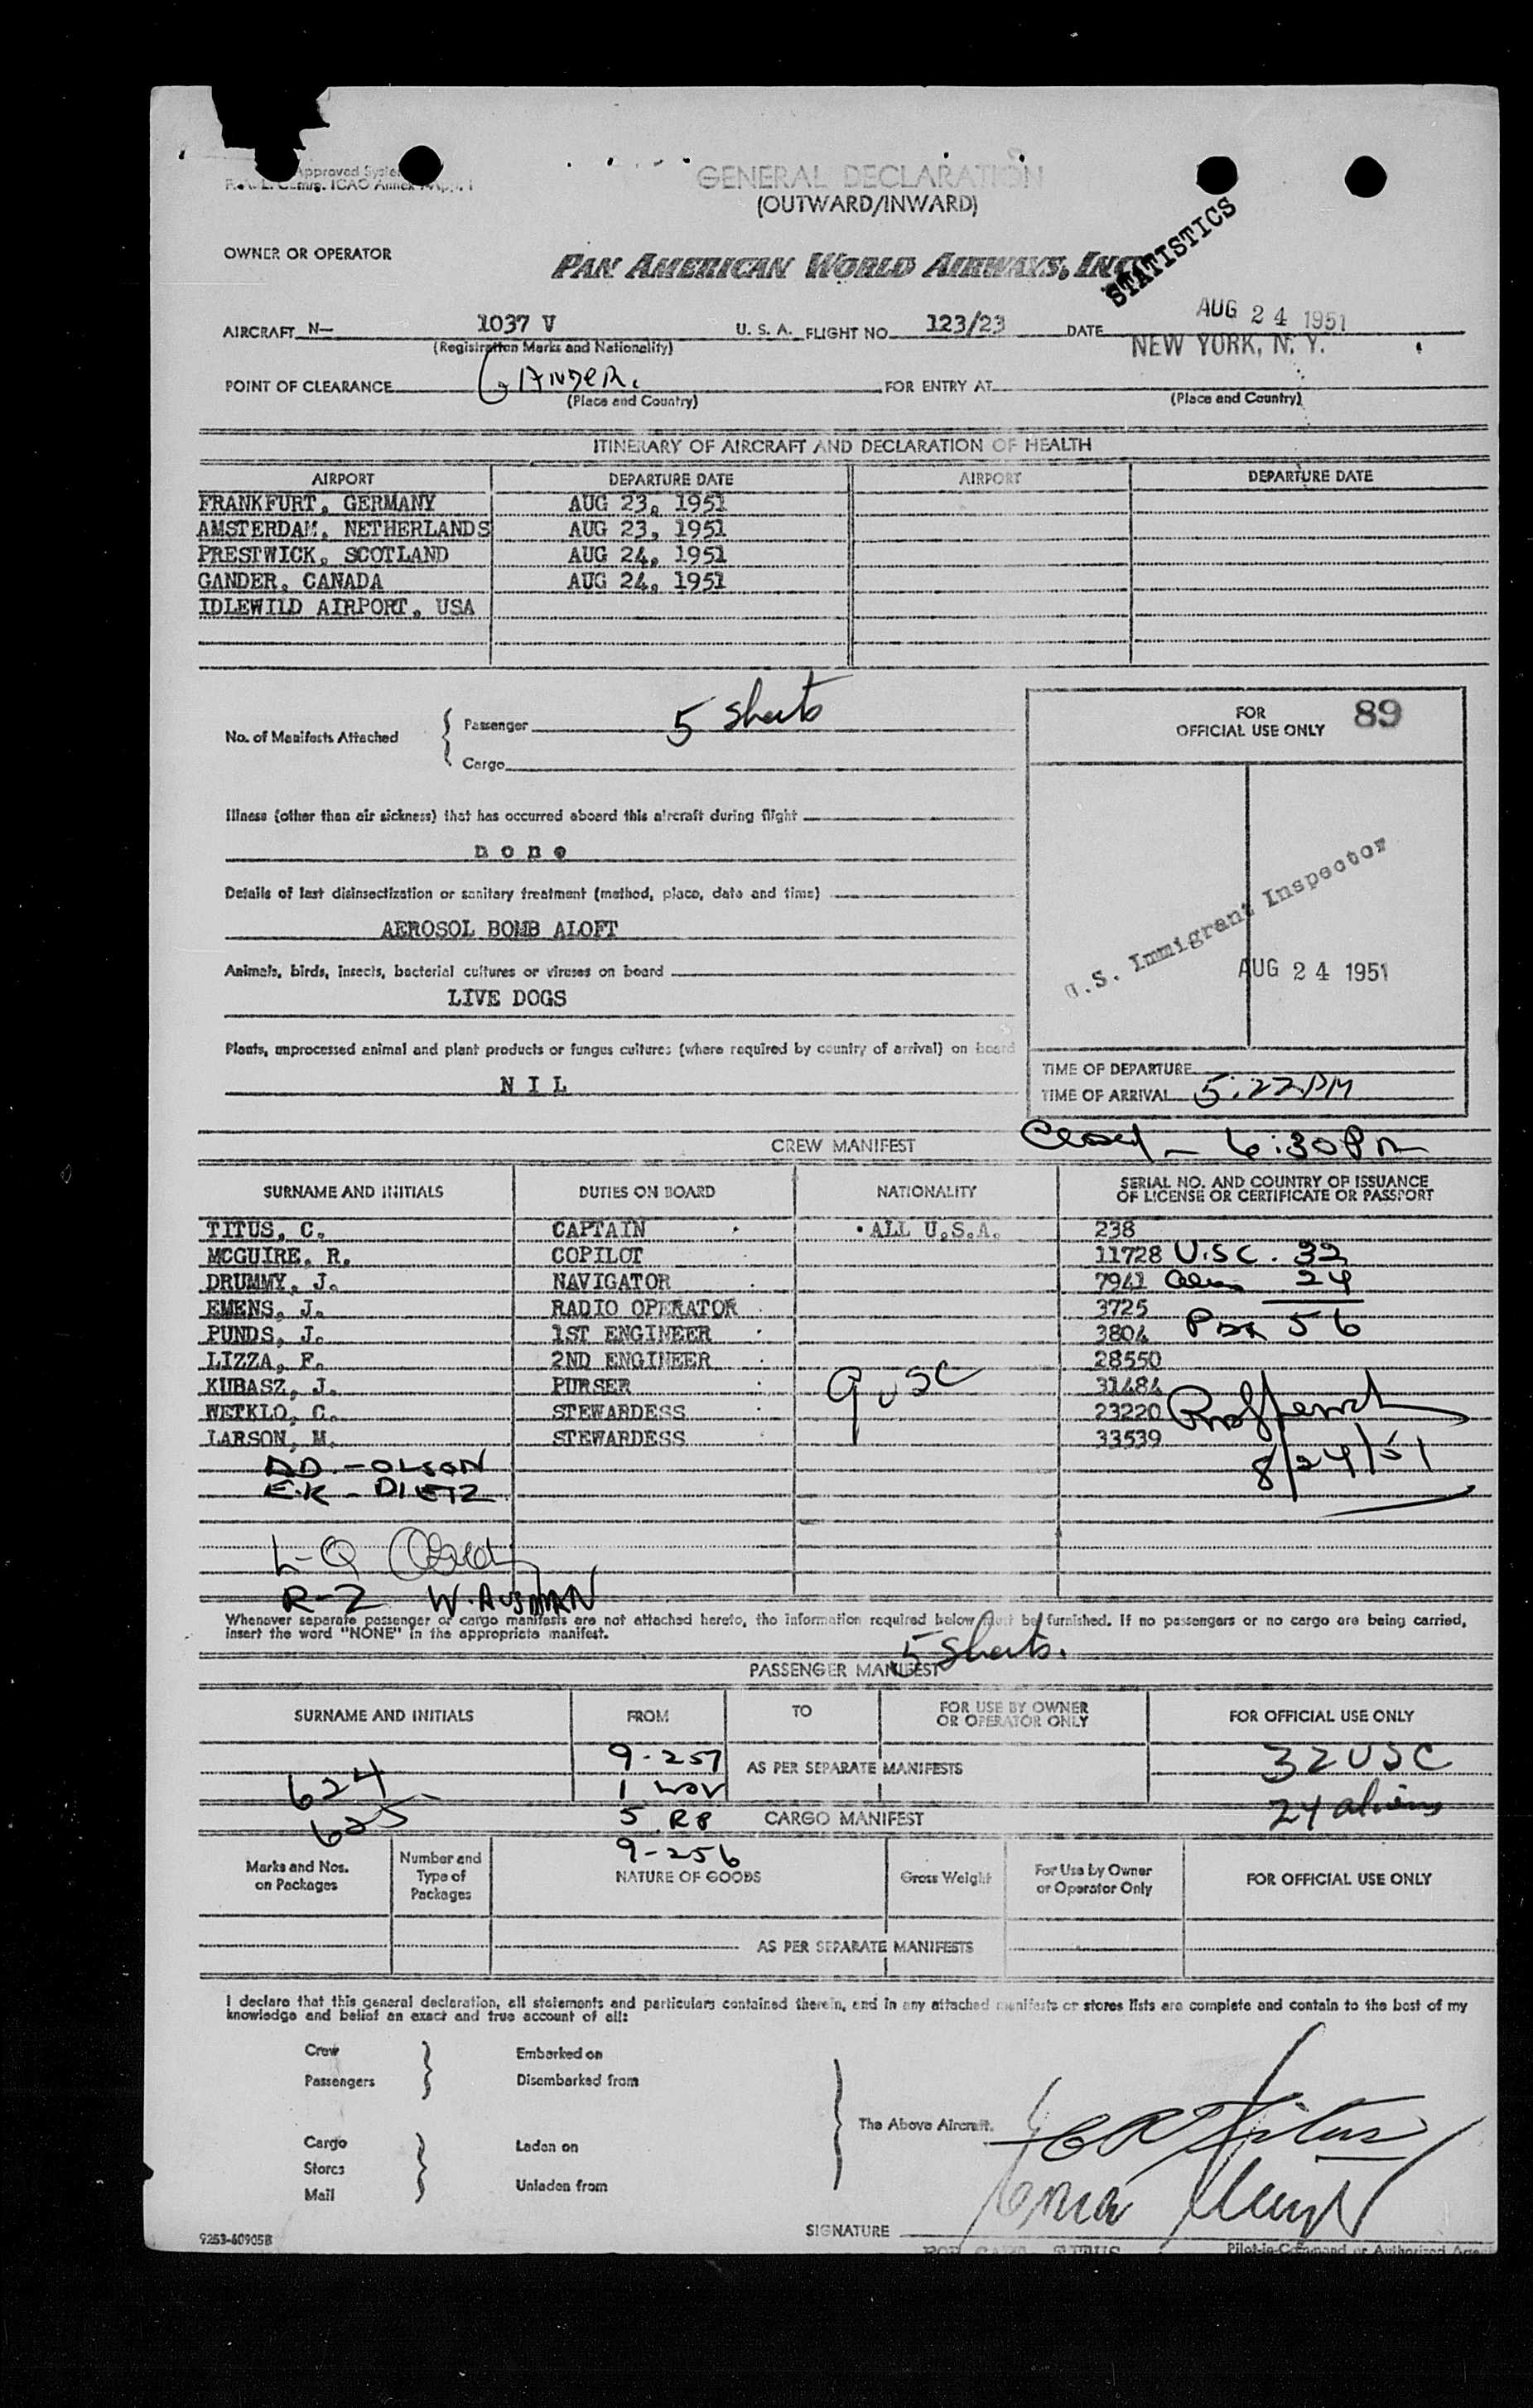 Approved
ICAO Annex
GENERAL DECLARATION
(OUTWARD/INWARD)
STATISTICS
OWNER OR OPERATOR
PAN AMERICAN WORLD AIRWAYS, INC.
AIRCRAFT N— 1037 V U. S. A. FLIGHT NO. 123/23 DATE AUG 24 1951
(Registration Marks and Nationality) NEW YORK, N. Y.
POINT OF CLEARANCE GANDER. FOR ENTRY AT
(Place and Country) (Place and Country)
ITINERARY OF AIRCRAFT AND DECLARATION OF HEALTH
AIRPORT DEPARTURE DATE AIRPORT DEPARTURE DATE
FRANKFURT, GERMANY AUG 23, 1951
AMSTERDAM, NETHERLANDS AUG 23, 1951
PRESTWICK, SCOTLAND AUG 24, 1951
GANDER, CANADA AUG 24, 1951
IDLEWILD AIRPORT, USA
No. of Manifests Attached { Passenger 5 Sheets
Cargo
FOR OFFICIAL USE ONLY 89
Illness (other than air sickness) that has occurred aboard this aircraft during flight
none
Details of last disinsectization or sanitary treatment (method, place, date and time)
AEROSOL BOMB ALOFT
Animals, birds, insects, bacterial cultures or viruses on board
LIVE DOGS
U.S. Immigrant Inspector
AUG 24 1951
Plants, unprocessed animal and plant products or fungus cultures (where required by country of arrival) on board
NIL
TIME OF DEPARTURE
TIME OF ARRIVAL 5:22 PM
Closed – 6:30 PM
CREW MANIFEST
SURNAME AND INITIALS DUTIES ON BOARD NATIONALITY SERIAL NO. AND COUNTRY OF ISSUANCE OF LICENSE OR CERTIFICATE OR PASSPORT
TITUS, C. CAPTAIN ALL U.S.A. 238
MCGUIRE, R. COPILOT 11728 U.S C. 32
DRUMMY, J. NAVIGATOR 7941 24
EMENS, J. RADIO OPERATOR 3725
PUNDS, J. 1ST ENGINEER 3804 56
LIZZA, F. 2ND ENGINEER 28550
KUBASZ, J. PURSER 9 USC 31484
WETKLO, C. STEWARDESS 23220
LARSON, M. STEWARDESS 33539
8/24/51
D.D. – OLSON
E.K – DIETZ
L-Q
R-Z W. AUSMAN
Whenever separate passenger or cargo manifests are not attached hereto, the information required below must be furnished. If no passengers or no cargo are being carried,
insert the word "NONE" in the appropriate manifest.
5 Sheets.
PASSENGER MANIFEST
SURNAME AND INITIALS FROM TO FOR USE BY OWNER OR OPERATOR ONLY FOR OFFICIAL USE ONLY
9-257 AS PER SEPARATE MANIFESTS 32 USC
624 1
625 5 RP CARGO MANIFEST 24 aliens
9-256
Marks and Nos. on Packages Number and Type of Packages NATURE OF GOODS Gross Weight For Use by Owner or Operator Only FOR OFFICIAL USE ONLY
AS PER SEPARATE MANIFESTS
I declare that this general declaration, all statements and particulars contained therein, and in any attached manifests or stores lists are complete and contain to the best of my
knowledge and belief an exact and true account of all:
Crew Embarked on
Passengers Disembarked from
The Above Aircraft.
Cargo Laden on
Stores
Mail Unladen from
C R Titus
SIGNATURE
FOR CAPT. TITUS Pilot-in-Command or Authorized Agent
9253-60905B